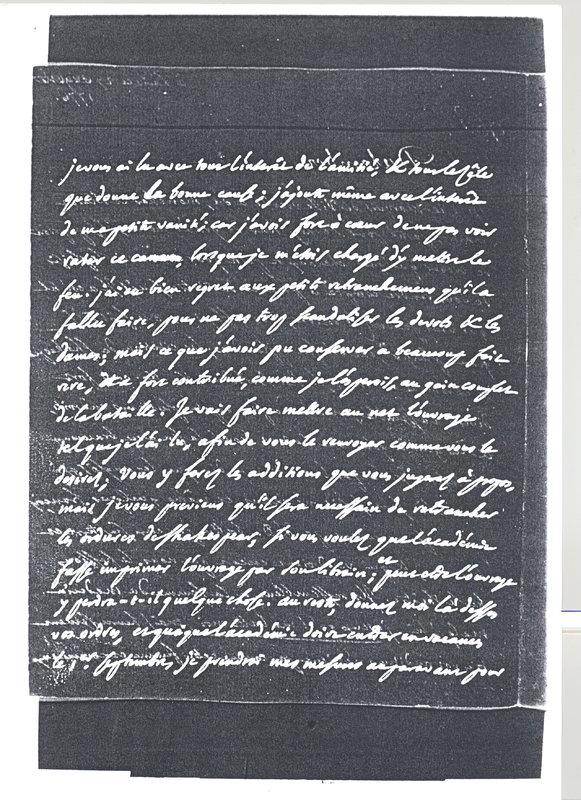 je vous ai lu avec tout l'interêt de l'amitié, & tout le zêle
que donne la bonne cause; j'ajoute même avec l'interêt
de ma petite vanité; car j'avois fort à cœur de ne pas voir
rater ce canon, lorsque je m'étois chargé d'y mettre le
feu. j'ai eu bien regret aux petits retranchemens qu'il a
fallu faire, pour ne pas trop scandaliser les devots & les
dames; mais ce que j'avois pu conserver a beaucoup fait
rire, & a fort contribué, comme je l'esperois, au gain complet
de la bataille. Je vais faire mettre au net l'ouvrage
tel que je l'ai lu, afin de vous le renvoyer comme vous le
desirez, vous y ferez les additions que vous jugerez à propos,
mais je vous previens qu'il sera necessaire de retrancher
les ordures de Shakespear, si vous voulez que l'académie
fasse imprimer l'ouvrage par son libraire; et peut etre l'ouvrage
y perdra-t-il quelque chose. au reste, donnez moi là dessus
vos ordres, et quoique l'académie doive entrer en vacances
le 1er. septembre, je prendrai mes mesures auparavant pour